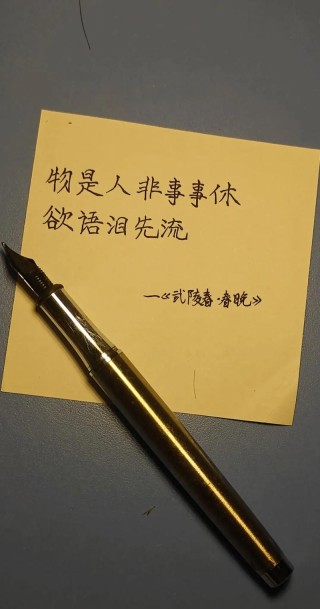 物是人非事事休
欲语泪先流
—《武陵春·春晚》